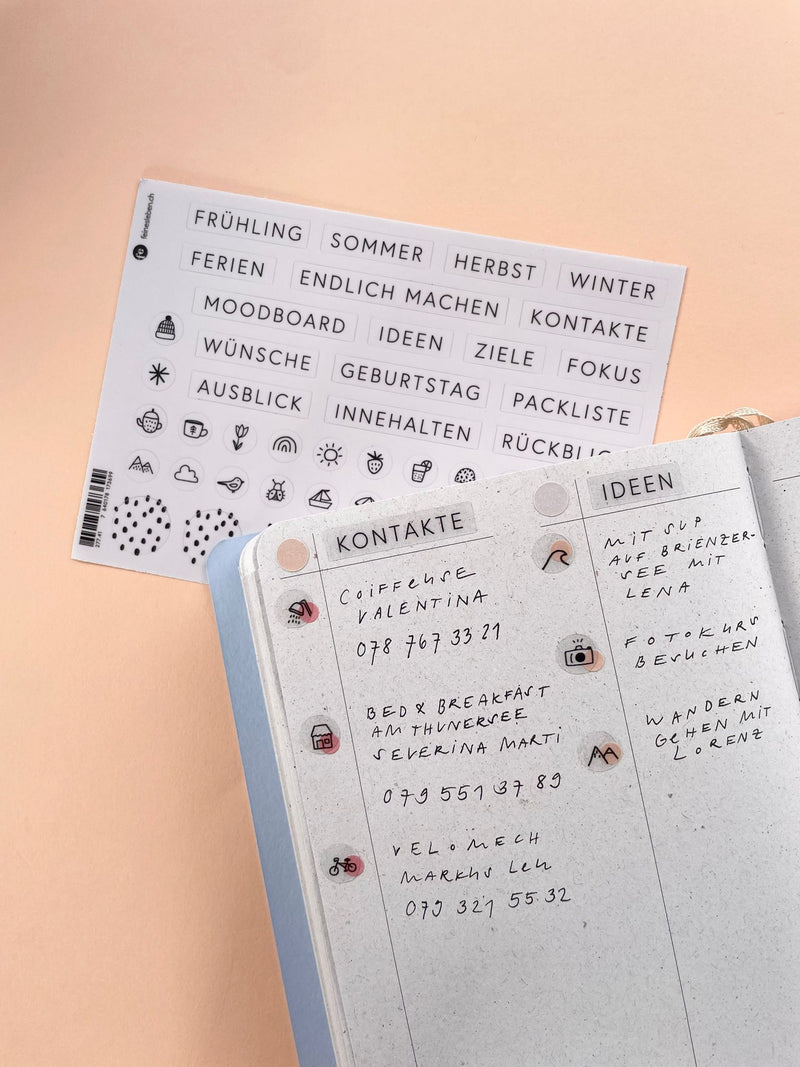 feinesleben.ch
FRÜHLING SOMMER HERBST WINTER
FERIEN ENDLICH MACHEN KONTAKTE
MOODBOARD IDEEN ZIELE FOKUS
WÜNSCHE GEBURTSTAG PACKLISTE
AUSBLICK INNEHALTEN
KONTAKTE
COIFFEUSE
VALENTINA
078 767 33 21
BED & BREAKFAST
AM THUNERSEE
SEVERINA MARTI
079 551 37 89
VELOMECH
MARKUS
079 321 55 32
IDEEN
MIT SUP
AUF BRIENZER-
SEE MIT
LENA
FOTOKURS
BESUCHEN
WANDERN
GEHEN MIT
LORENZ